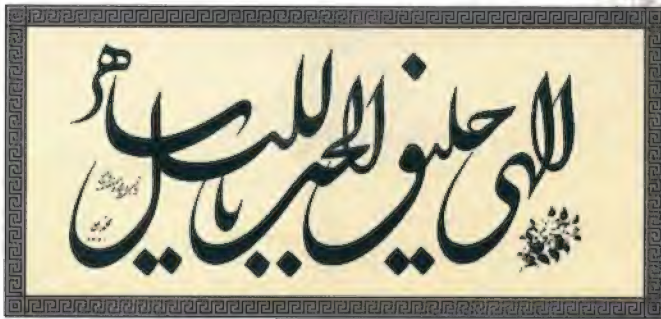 الهی حلیف الحب باللیل ساهر